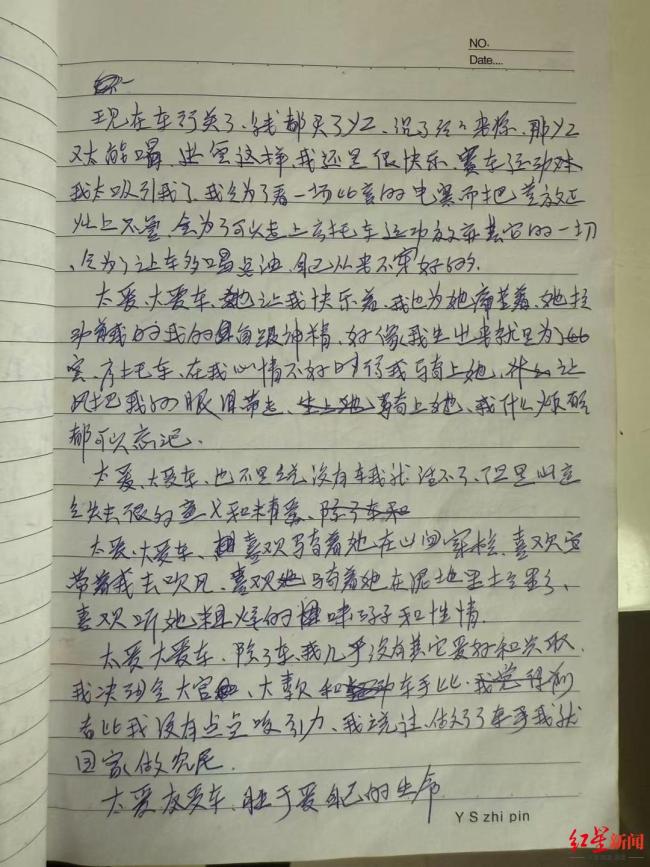 NO.
Date....
现在车行关了、钱都买了YZ、没了经济来源、那YZ
又太能喝、尽管这样、我还是很快乐、赛车运动对
我太吸引我了、我会为了看一场比赛的电视而把菜放在
灶上不管、会为了可以走上摩托车运动放弃其它的一切
、会为了让车多喝点油、自己从来不穿好的、
太爱、太爱车、她让我快乐着、我也为她痛苦着、她拉
动着我的每一根神经、好像我生出来就是为了
摩托车、在我心情不好时、我骑上她、让
风把我的烦恼带走、骑上她、我什么烦恼
都可以忘记、
太爱、太爱车、也不是说没有车我就活不了、但是
会失去很多意义和精彩、
太爱、太爱车、喜欢骑着她在山里穿梭、喜欢她
带着我去吹风、喜欢骑着她在泥地里
喜欢听她粗糙的嗓子和性情、
太爱太爱车、除了车、我几乎没有其它爱好和兴趣、
我决到 大官、大款和车手比、前
者比我没有点点吸引力、我说过、做不了车手我就
回家做农民、
太爱太爱车、胜于爱自己的生命
YS zhi pin
红星新闻